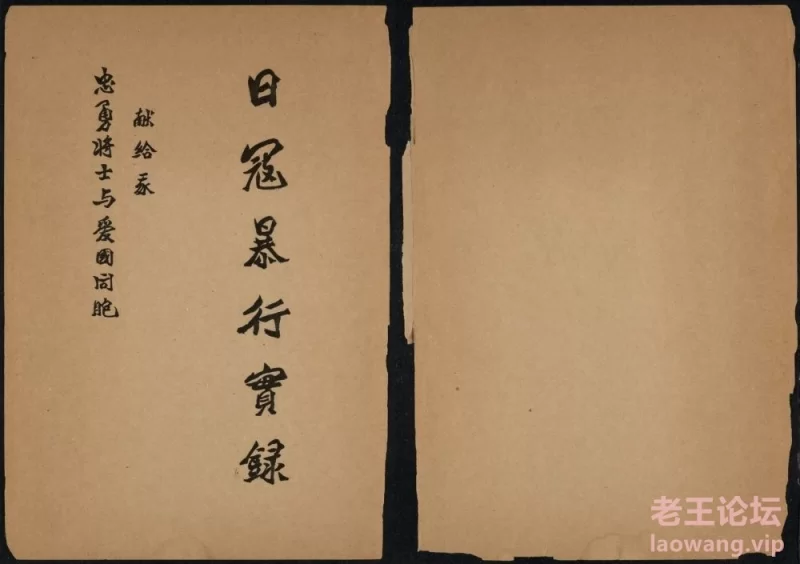 日寇暴行實録
献给我
忠勇将士与爱國同胞
老王论坛
laowang.vip